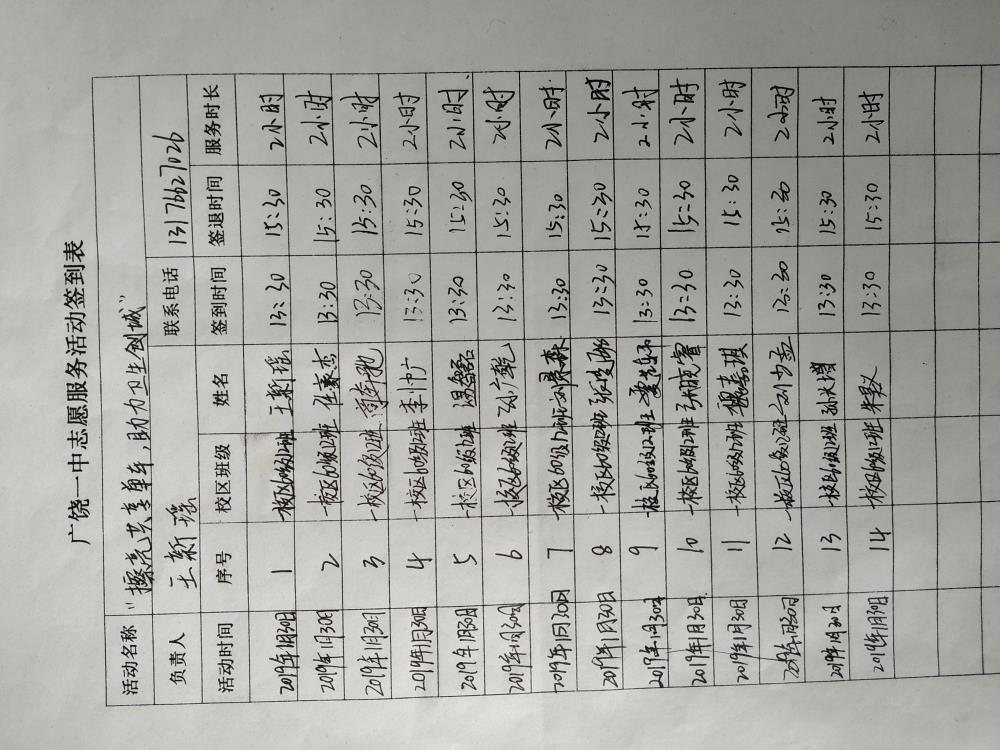 广饶一中志愿服务活动签到表
活动名称 “擦亮共享单车，助力卫生创城”
负责人 王新瑶 联系电话 13176627026
活动时间 序号 校区班级 姓名 签到时间 签退时间 服务时长
2019年1月30日 1 一校区60级12班 王新瑶 13:30 15:30 2小时
2019年1月30日 2 一校区60级12班 杰 13:30 15:30 2小时
2019年1月30日 3 一校区60级12班 13:30 15:30 2小时
2019年1月30日 4 一校区60级12班 李 13:30 15:30 2小时
2019年1月30日 5 一校区60级12班 温磊 13:30 15:30 2小时
2019年1月30日 6 一校区60级12班 13:30 15:30 2小时
2019年1月30日 7 一校区60级12班 森 13:30 15:30 2小时
2019年1月30日 8 一校区60级12班 13:30 15:30 2小时
2019年1月30日 9 一校区60级12班 13:30 15:30 2小时
2019年1月30日 10 一校区60级12班 张晓睿 13:30 15:30 2小时
2019年1月30日 11 一校区60级12班 魏嘉琪 13:30 15:30 2小时
2019年1月30日 12 一校区60级12班 13:30 15:30 2小时
2019年1月30日 13 一校区60级12班 13:30 15:30 2小时
2019年1月30日 14 一校区60级12班 13:30 15:30 2小时